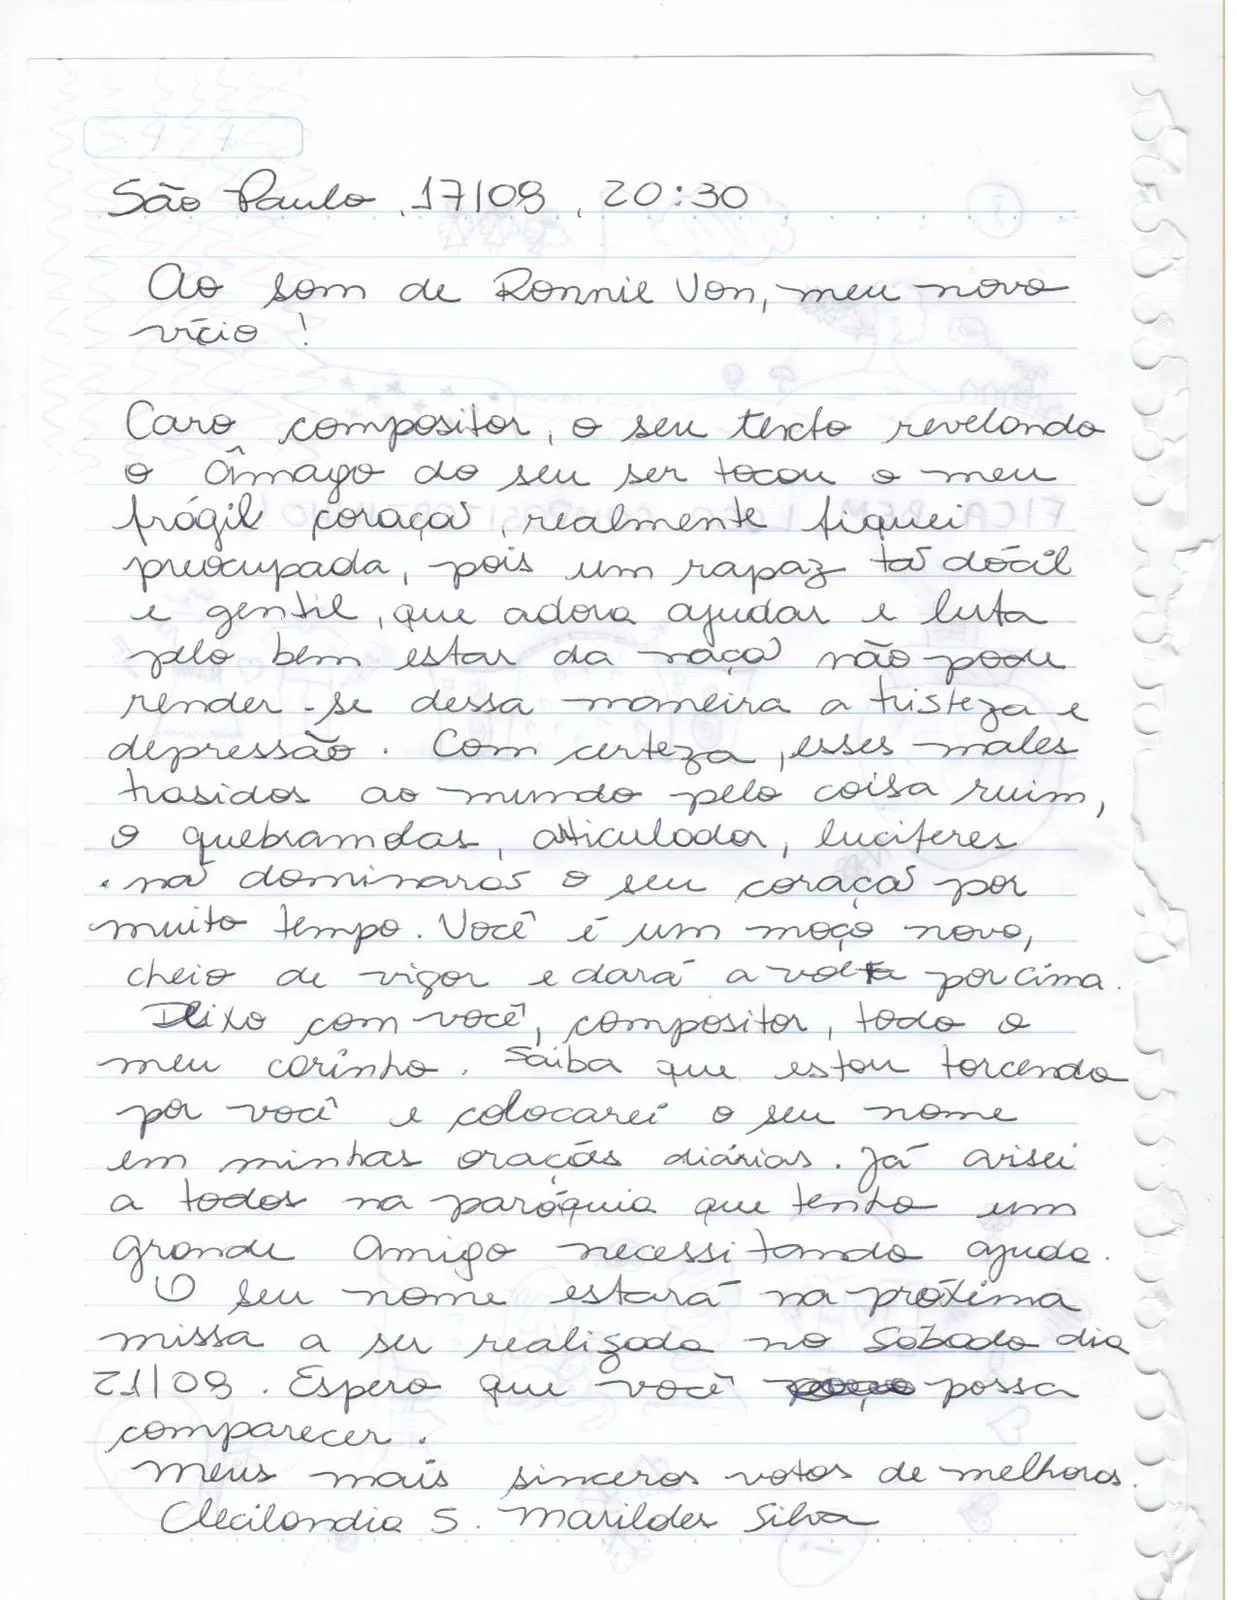 São Paulo, 17/08, 20:30
Ao som de Ronnie Von, meu novo
vício!
Caro compositor, o seu texto revelando
o âmago do seu ser tocou o meu
frágil coraçã, realmente fiquei
preocupada, pois um rapaz tã dócil
e gentil, que adora ajudar e luta
pelo bem estar da naçã não pode
render-se dessa maneira a tristeza e
depressão. Com certeza, esses males
trasidos ao mundo pelo coisa ruim,
o quebramdas, articulador, luciferes
nã dominarãs o seu coraçã por
muito tempo. Você é um moço novo,
cheio de vigor e dará a volta por cima.
Deixo com você, compositor, todo o
meu carinho. Saiba que estou torcendo
por você e colocarei o seu nome
em minhas oraçãs diárias. Já avisei
a todos na paróquia que tenho um
grande amigo necessitando ajuda.
O seu nome estará na próxima
missa a ser realizada no Sábado dia
21/08. Espero que você possa
comparecer.
Meus mais sinceros votos de melhoras.
Clecilandia S. Marildes Silva
FICA BEM LOGO COMPOSITORZINHO!